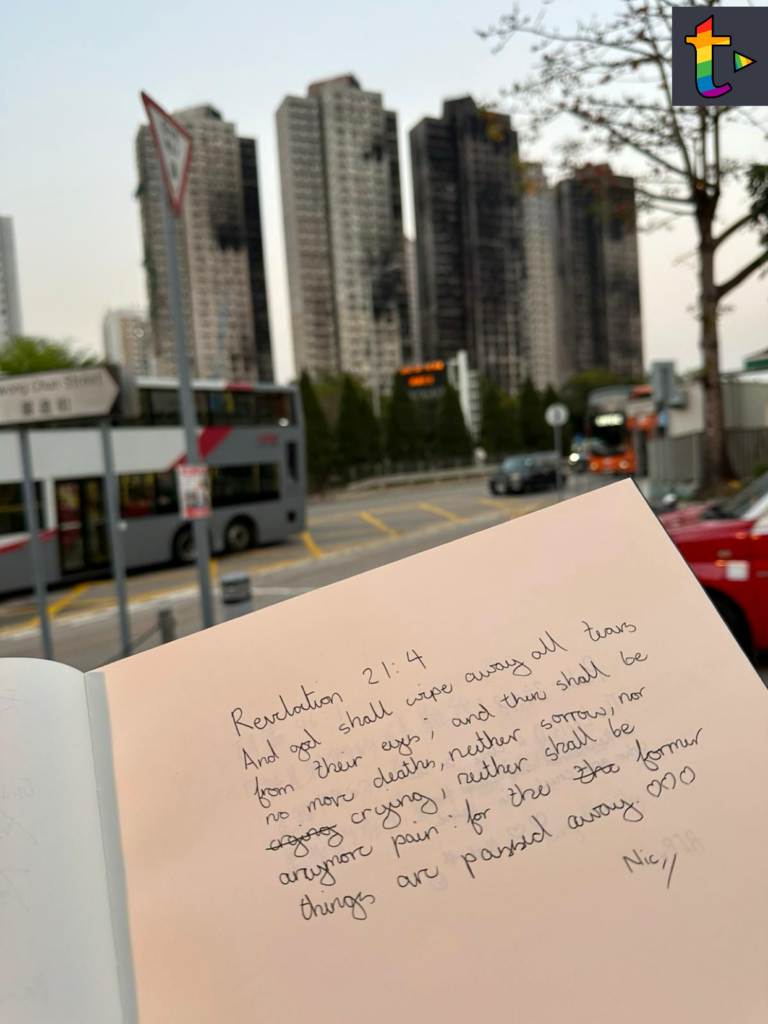 t
wong Chun Street
Revelation 21:4
And god shall wipe away all tears
from their eyes; and there shall be
no more deaths, neither sorrow, nor
crying, neither shall be
anymore pain: for the former
things are passed away. ♡♡♡
Nic,,